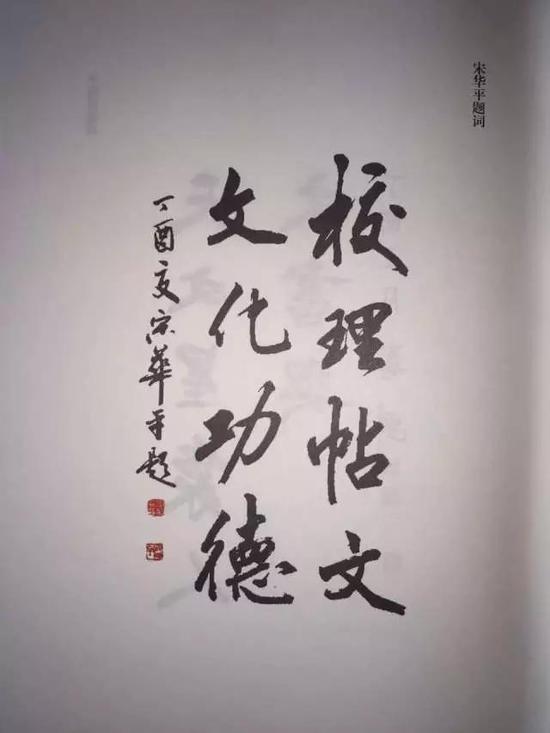 宋华平题词
校理帖文
文化功德
丁酉夏宋華平題